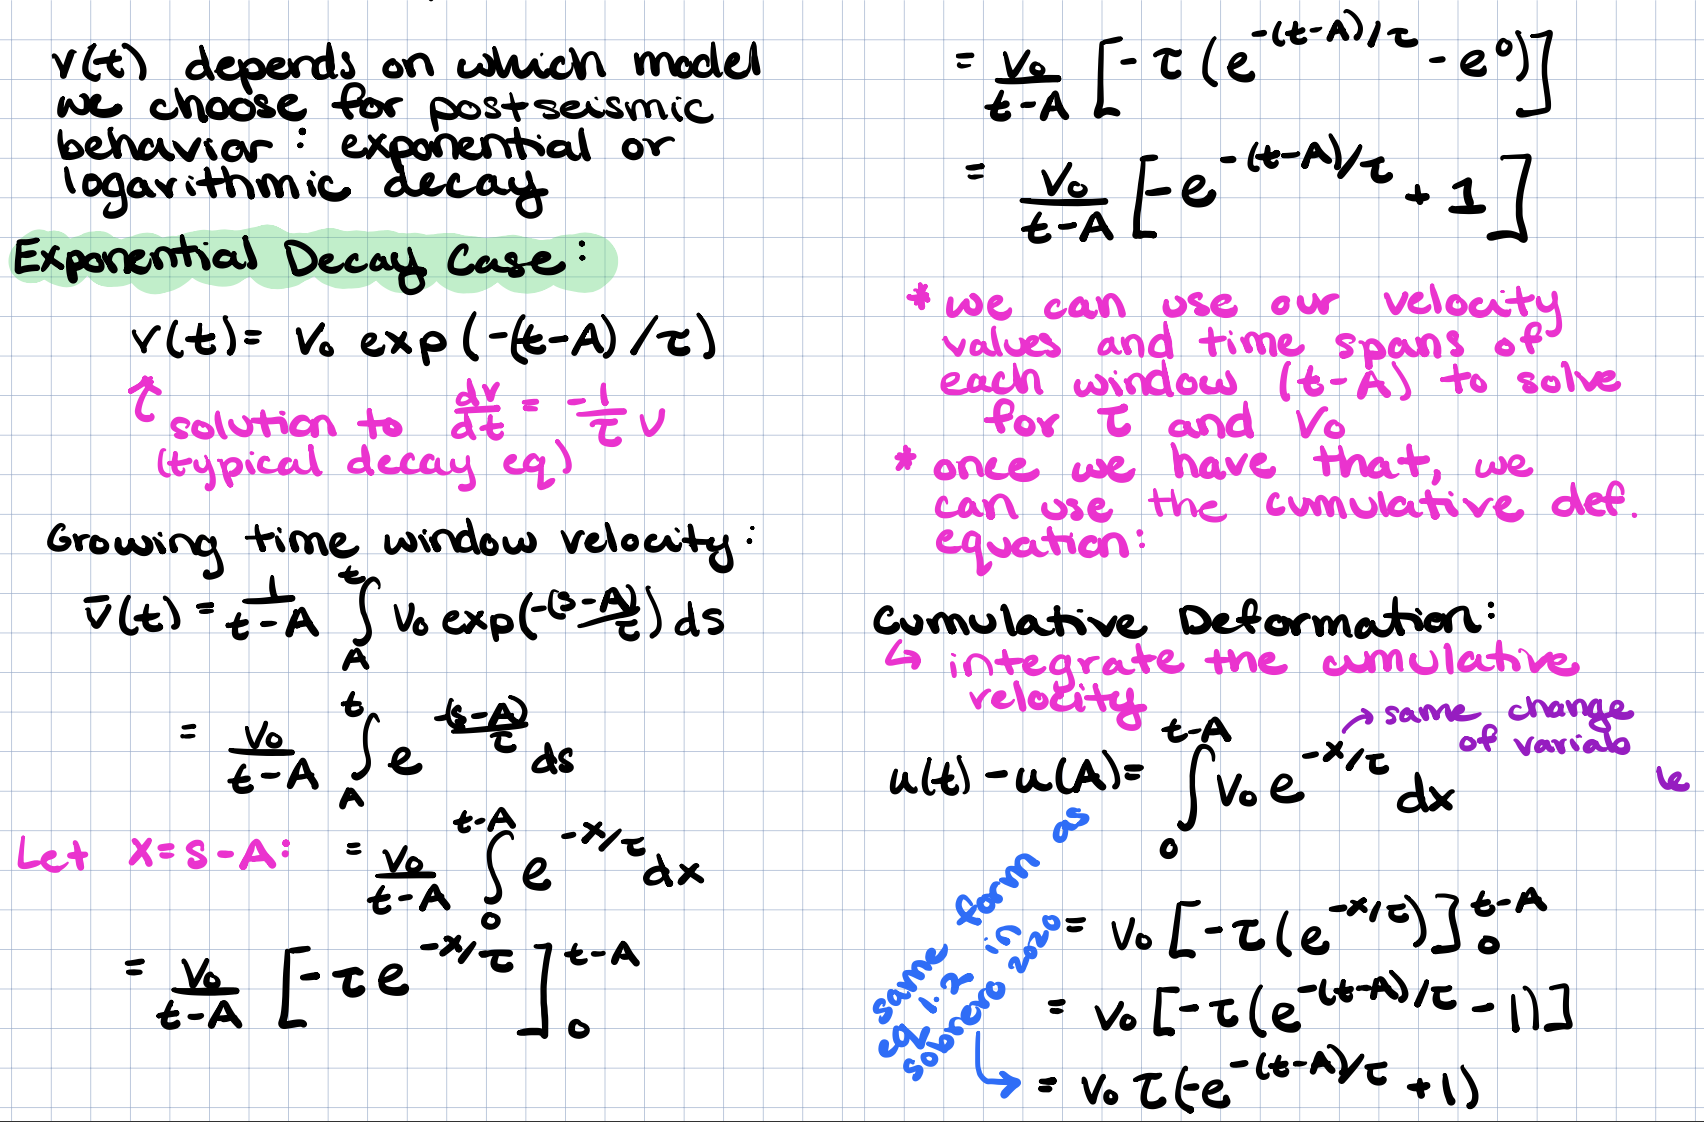 v(t) depends on which model
we choose for postseismic
behavior: exponential or
logarithmic decay
Exponential Decay Case:
v(t) = V₀ exp(-(t-A)/τ)
↑ solution to dv/dt = -1/τ v
(typical decay eq)
Growing time window velocity:
v̄(t) = 1/(t-A) ∫_A^t V₀ exp(-(s-A)/τ) ds
= V₀/(t-A) ∫_A^t e^(-(s-A)/τ) ds
Let x = s-A: = V₀/(t-A) ∫_0^(t-A) e^(-x/τ) dx
= V₀/(t-A) [-τ e^(-x/τ)]_0^(t-A)
= V₀/(t-A) [-τ (e^(-(t-A)/τ) - e⁰)]
= V₀/(t-A) [-e^(-(t-A)/τ) + 1]
* we can use our velocity
values and time spans of
each window (t-A) to solve
for τ and V₀
* once we have that, we
can use the cumulative def.
equation:
Cumulative Deformation:
↳ integrate the cumulative
velocity
→ same change
of variab
le
u(t) - u(A) = ∫_0^(t-A) V₀ e^(-x/τ) dx
= V₀ [-τ (e^(-x/τ))]_0^(t-A)
= V₀ [-τ (e^(-(t-A)/τ) - 1)]
same form as
eq 1.2 in
sobrero 2020
→ = V₀ τ (-e^(-(t-A)/τ) + 1)